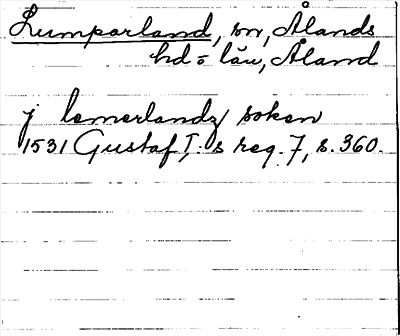 Lumparland, sn, Ålands
hd o län, Åland
j lemerlandz soken
1531 Gustaf I:s reg. 7, s. 360.